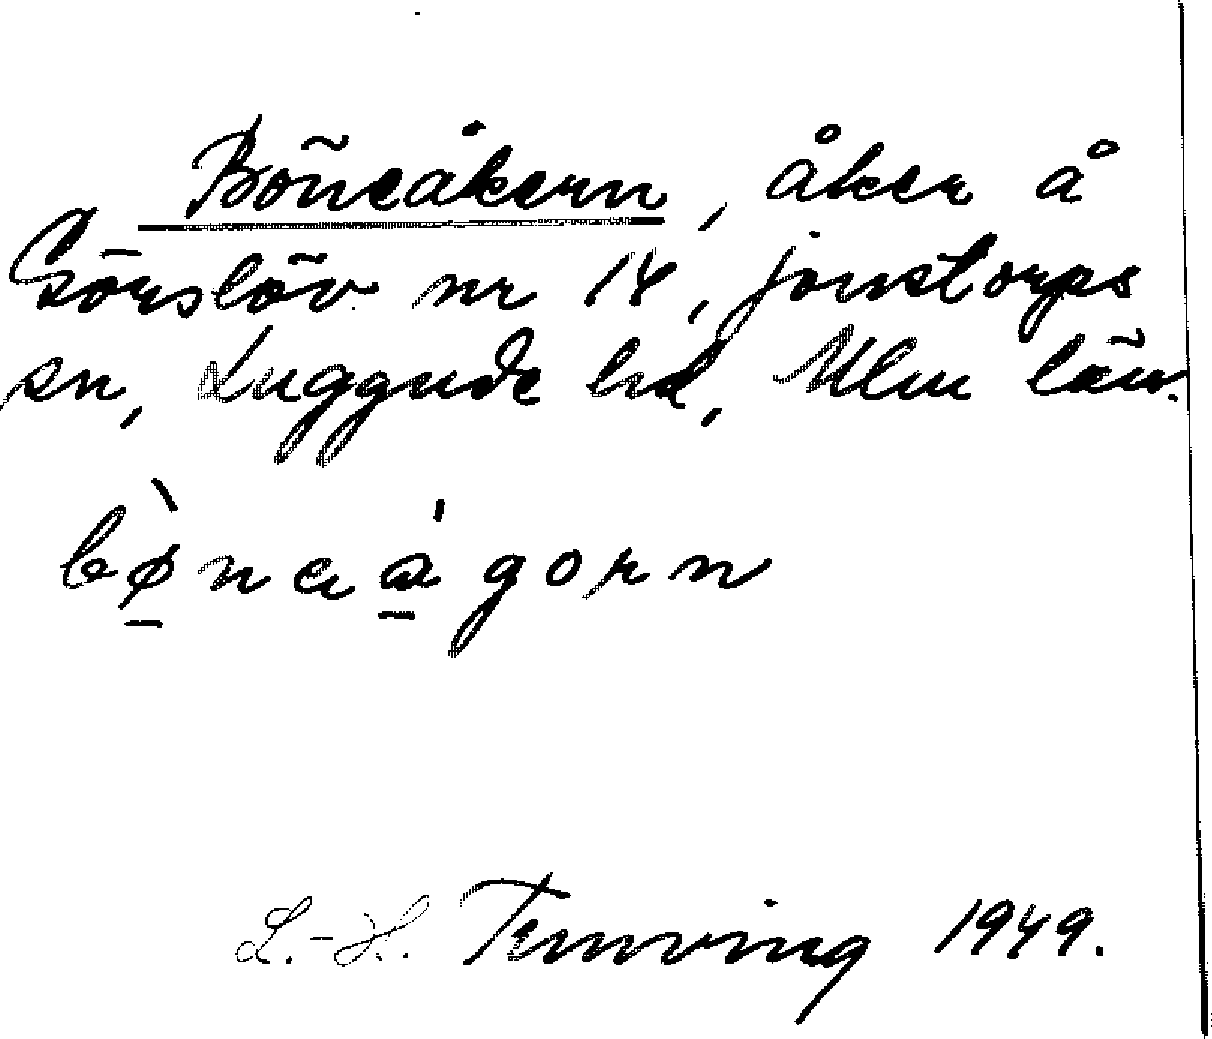 Böneåkern, åker å
Görslöv nr 14, Jonstorps
sn, Luggude hd, Mlm län.
bø̀neágorn
L.-H. Tenwing 1949.